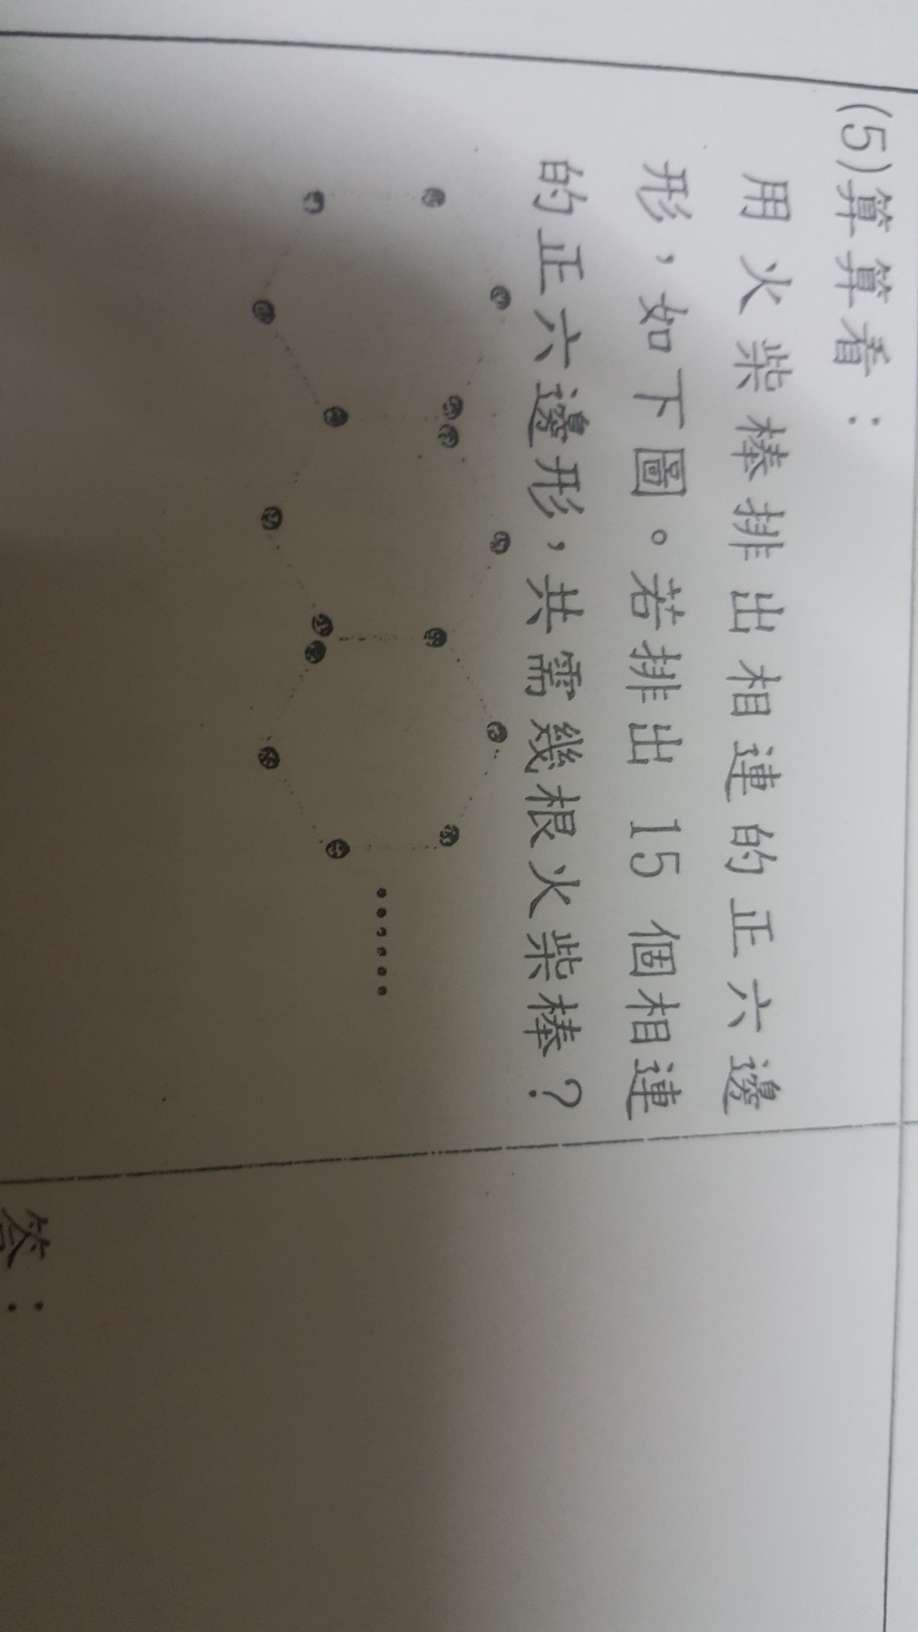 (5)算算看：
用火柴棒排出相連的正六邊
形，如下圖。若排出 15 個相連
的正六邊形，共需幾根火柴棒？
……
答：